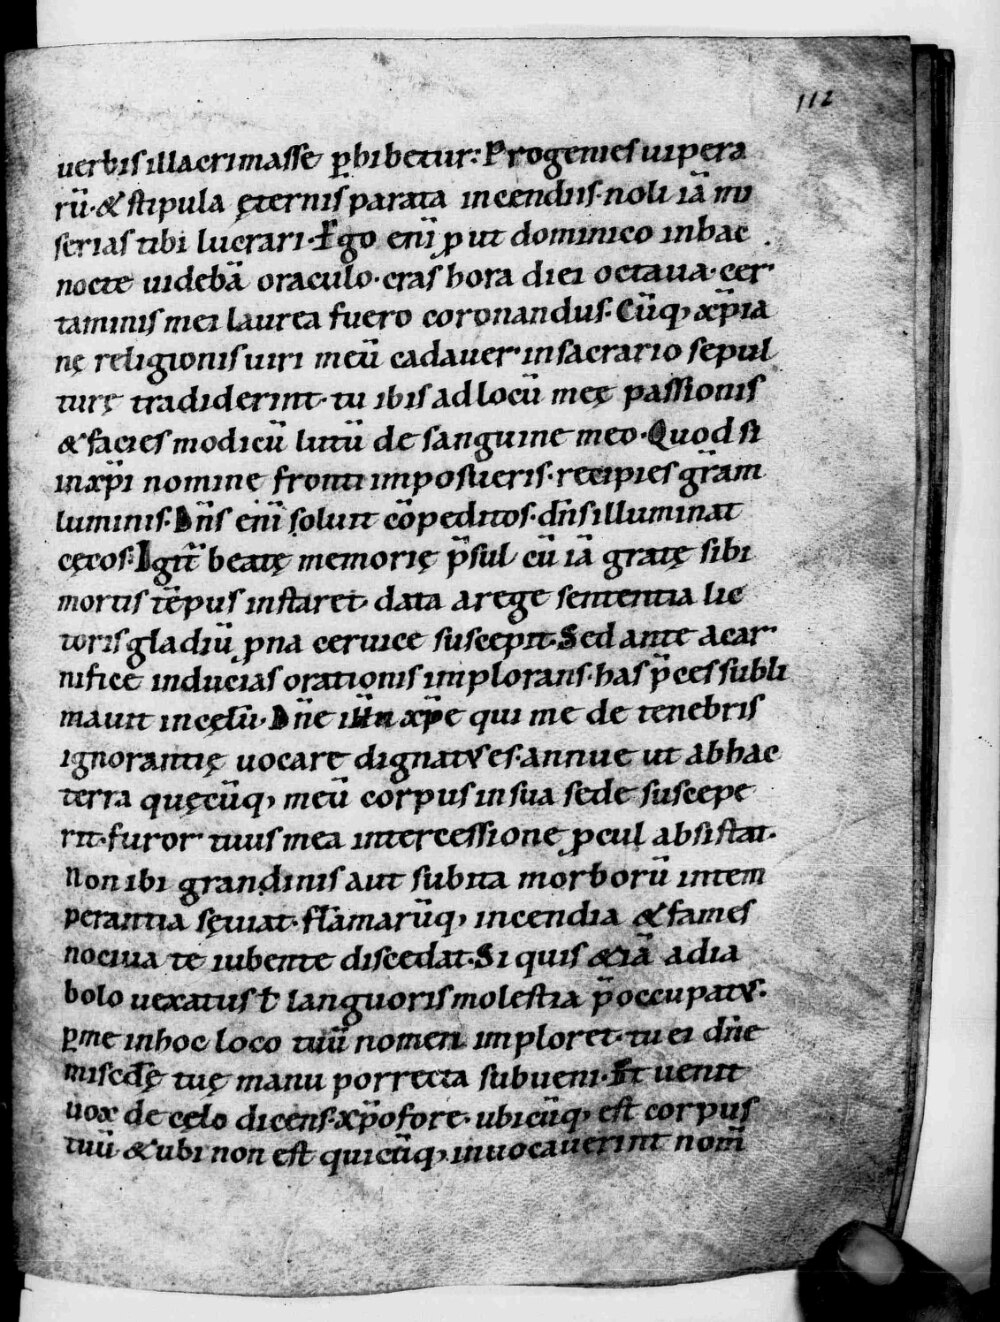 112
uerbis illacrimasse ꝑhibetur: Progenies uipera
rū. & stipula ęternis parata incendiis. noli iā mi
serias tibi lucrari. Ego enī ꝓut dominico in hac
nocte uidebā oraculo. cras hora diei octaua. cer
taminis mei laurea fuero coronandus. Cūq; xp̄ia
nę religionis uiri meū cadauer in sacrario sepul
turę tradiderint. tu ibis ad locū meę passionis
& facies modicū lutū de sanguine meo. Quod si
in xp̄i nomine fronti imposueris. recipies gr̄am
luminis. Dn̄s enī soluit cōpeditos. dn̄s illuminat
cęcos. Igit̄ beatę memorię p̄sul cū iā gratę sibi
mortis tēpus instaret. data a rege sententia lic
toris gladiū ꝓna ceruice suscepit. Sed ante a car
nifice inducias orationis implorans. has p̄ces subli
mauit in cęlū. Dn̄e ih̄u xp̄e qui me de tenebris
ignorantię uocare dignatꝰ es. annue ut ab hac
terra quęcūq; meū corpus in sua sede suscepe
rit. furor tuus mea intercessione ꝓcul absistat.
Non ibi grandinis aut subita morborū intem
perantia sęuiat. flāmarūq; incendia & fames
nociua te iubente discedat. Si quis &iā a dia
bolo uexatus ł languoris molestia p̄occupatꝰ.
ꝑ me in hoc loco tuū nomen imploret. tu ei dn̄e
miscd̄ę tuę manu porrecta subueni. Et uenit
uox de cęlo dicens. xp̄ofore. ubicūq; est corpus
tuū & ubi non est quicūq; inuocauerint nom̄